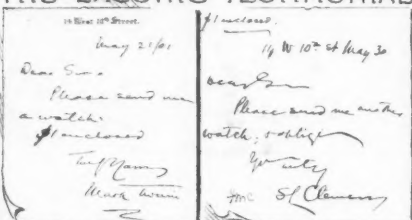 14 West 10th Street.
May 21/01
Dear Sirs
Please send me
a watch.
$1 enclosed
Truly Yours
Mark Twain
$1 enclosed.
14 W 10th St May 30
Dear Sirs
Please send me another
watch, & oblige
Ys truly
SL Clemens